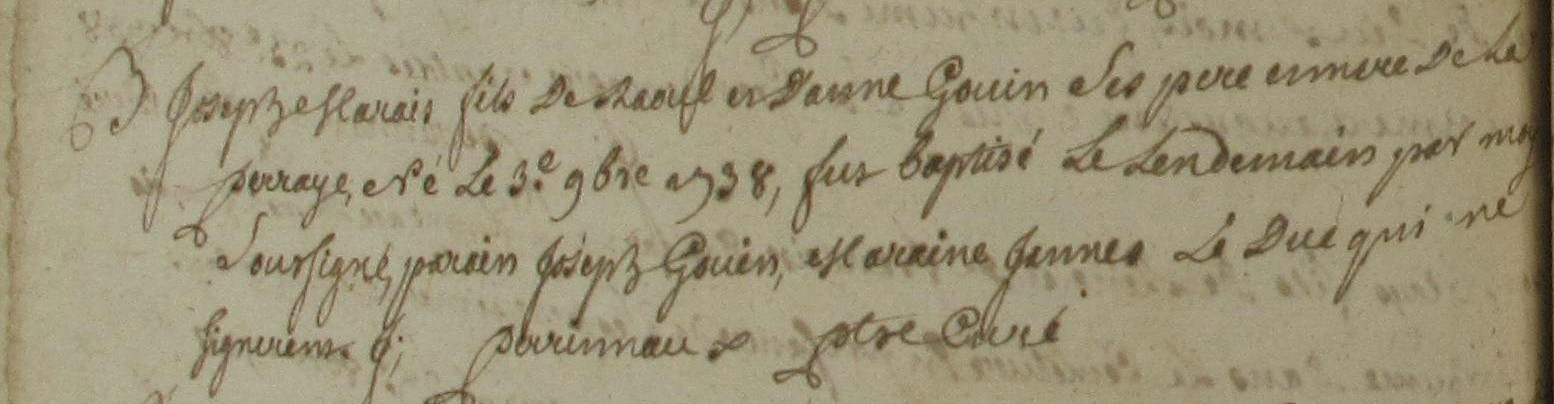 B Joseph Marais fils De Raoul et D'anne Gouin Ses pere et mere De La
perraye, Né Le 3.e 9bre 1738, fut baptisé Le Lendemain par moy
Soussigné, parain Joseph Gouin, Maraine Jenne Le Duc qui ne
signerent J. perrinnau ptre Curé